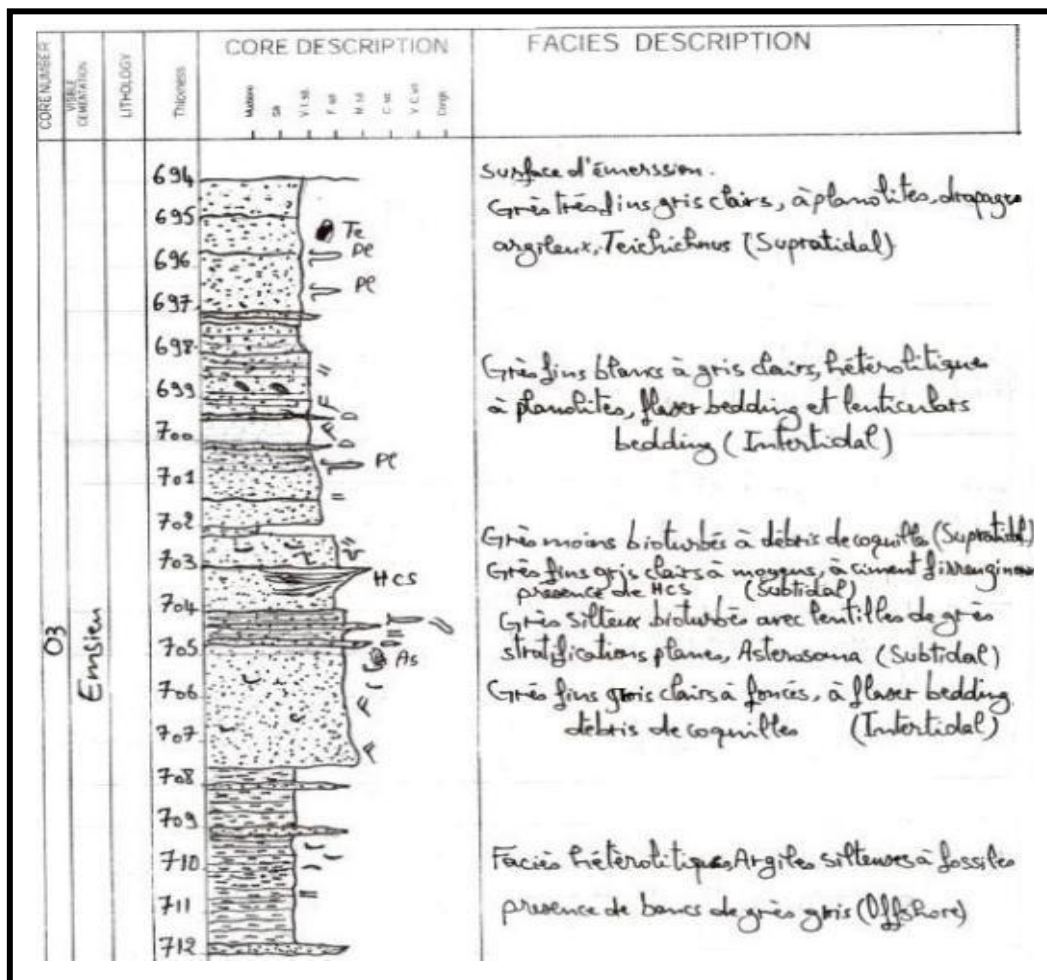 CORE NUMBER
VISIBLE CEMENTATION
LITHOLOGY
Thickness
CORE DESCRIPTION
Silt
V.f.sd
F.sd
M.sd
C.sd
V.C.sd
FACIES DESCRIPTION
03
Emsien
694
695
696
697
698
699
700
701
702
703
704
705
706
707
708
709
710
711
712
Te
Pl
Pl
F
Pl
HCS
As
F
F
surface d'émerssion.
Grès très fins gris clairs, à planolites, drapages
argileux, Teichichnus (Supratidal)
Grès fins blancs à gris clairs, hétérolitiques
à planolites, flaser bedding et lenticulars
bedding (Intertidal)
Grès moins bioturbés à débris de coquilles (Supratidal)
Grès fins gris clairs à moyens, à ciment
presence de HCS (Subtidal)
Grès silteux bioturbés avec lentilles de grès
stratifications planes, Asterosoma (Subtidal)
Grès fins gris clairs à foncés, à flaser bedding
débris de coquilles (Intertidal)
Faciès hétérolitiques, Argiles silteuses à fossiles
presence de bancs de grès gris (Offshore)